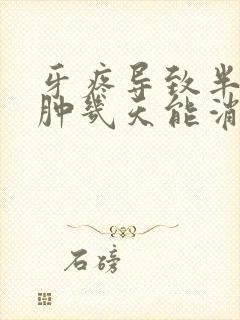 牙疼导致半
肿几天能消
石磅